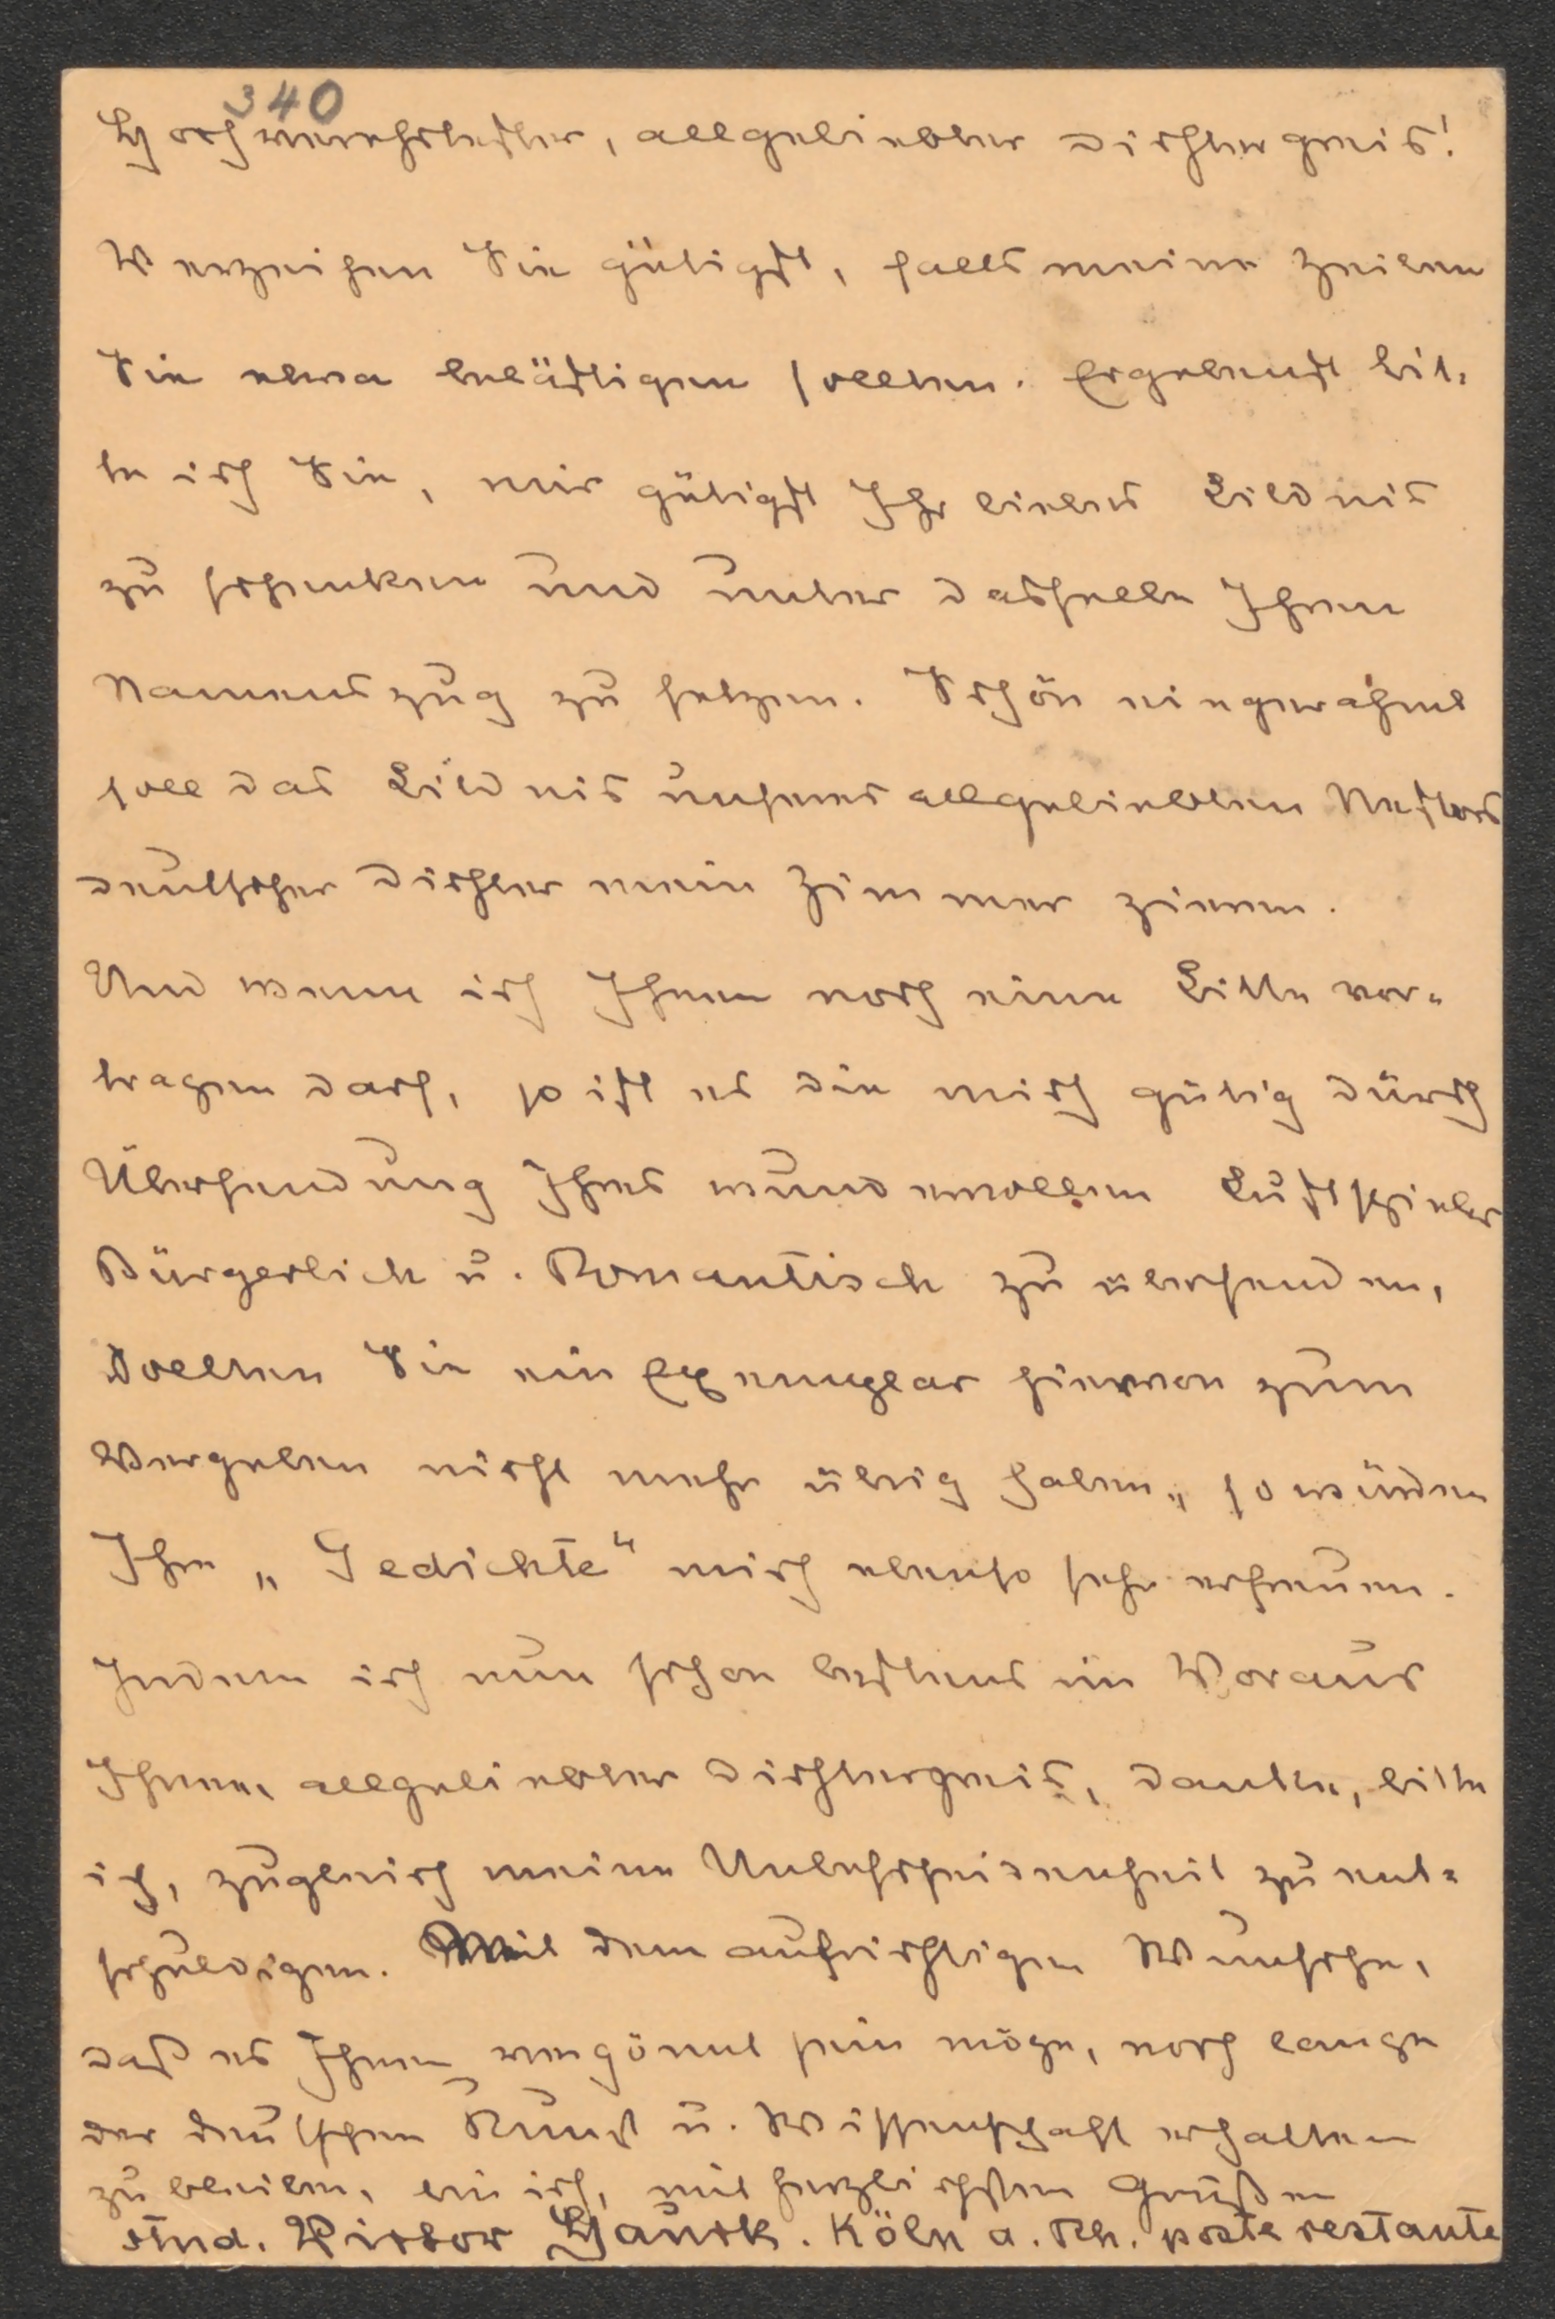 340
Hochverehrtester, allgeliebter Dichtergreis!
Verzeihen Sie gütigst, falls meine Zeilen
Sie etwa belästigen sollten. Ergebenst bit-
te ich Sie, mir gütigst Ihr liebes Bildnis
zu schenken und unter dasselbe Ihren
Namenszug zu setzen. Schön eingerahmt
soll das Bildnis unseres allgeliebten Nestors
deutscher Dichter mein Zimmer zieren.
Und wenn ich Ihnen noch eine Bitte vor-
tragen darf, so ist es die mich gütig durch
Übersendung Ihres wundervollen Lustspieles
Bürgerlich u. Romantisch zu übersenden,
Sollten Sie ein Exemplar hiervon zum
Vergeben nicht mehr übrig haben, so würden
Ihre „Gedichte" mich ebenso sehr erfreuen.
Indem ich nun schon bestens im Voraus
Ihnen, allgeliebter Dichtergreis, danke, bitte
ich, zugleich meine Unbescheidenheit zu ent-
schuldigen. Mit dem aufrichtigen Wunsche,
daß es Ihnen vergönnt sein möge, noch lange
der deutschen Kunst u. Wissenschaft erhalten
zu bleiben, bin ich, mit herzlichsten Grüßen
stud. Victor Hauck. Köln a. Rh. poste restante